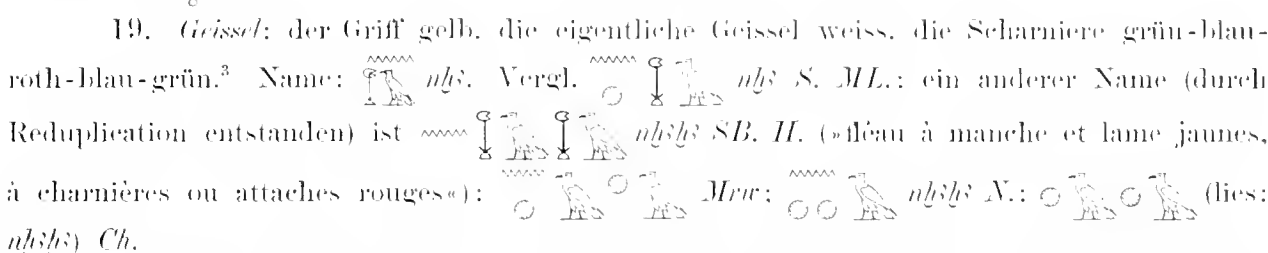 19. Geissel: der Griff gelb, die eigentliche Geissel weiss, die Scharniere grün-blau-
roth-blau-grün.³ Name: 𓈖𓆼𓅂 nḫꜣ. Vergl. 𓈖𓐍𓆼𓄿 nḫꜣ S. ML.: ein anderer Name (durch
Reduplication entstanden) ist 𓈖𓆼𓄿𓆼𓄿 nḫꜣḫꜣ SB. H. (»fléau à manche et lame jaunes,
à charnières ou attaches rouges«): 𓈖𓐍𓄿𓐍𓄿 Mrw: 𓈖𓐍𓐍𓄿 nḫꜣḫꜣ N.: 𓐍𓄿𓐍𓄿 (lies:
nḫꜣḫꜣ) Ch.